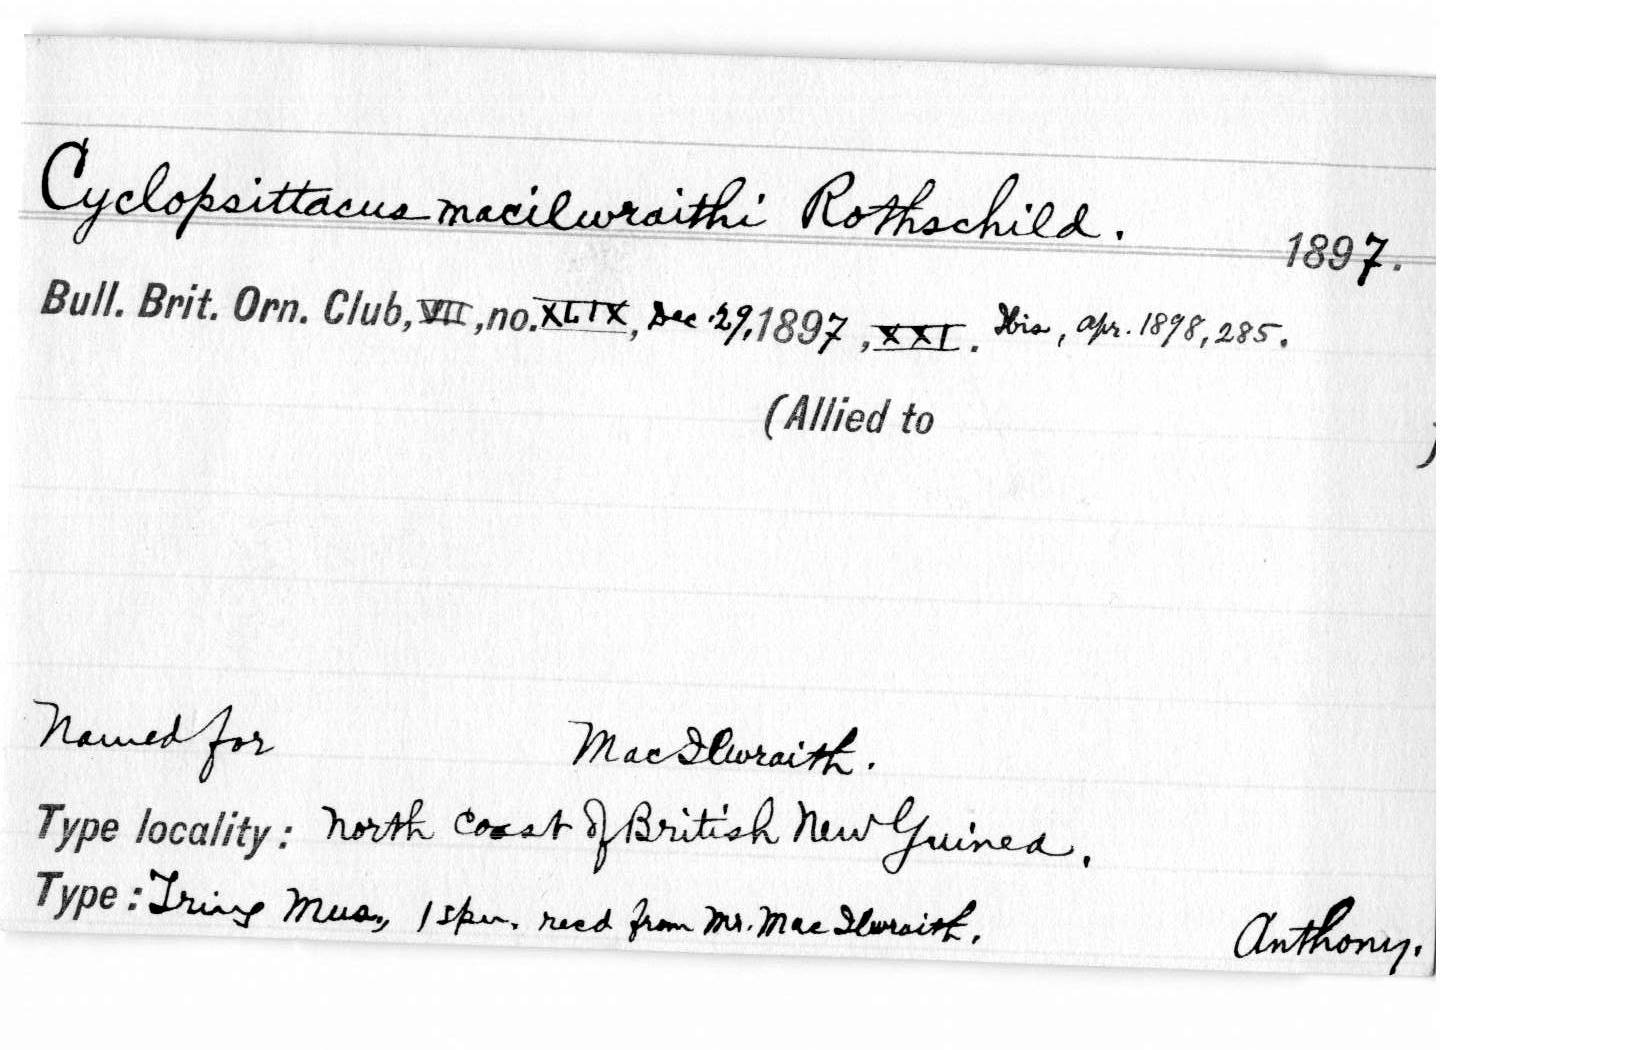 Cyclopsittacus macilwraithi Rothschild. 1897.
Bull. Brit. Orn. Club, VII, no. XLIX, Dec. 29, 1897, XXI. Ibis, Apr. 1898, 285.
(Allied to )
Named for MacIlwraith.
Type locality: North coast of British New Guinea.
Type: Tring Mus., 1 spm. recd from Mr. MacIlwraith. Anthony.